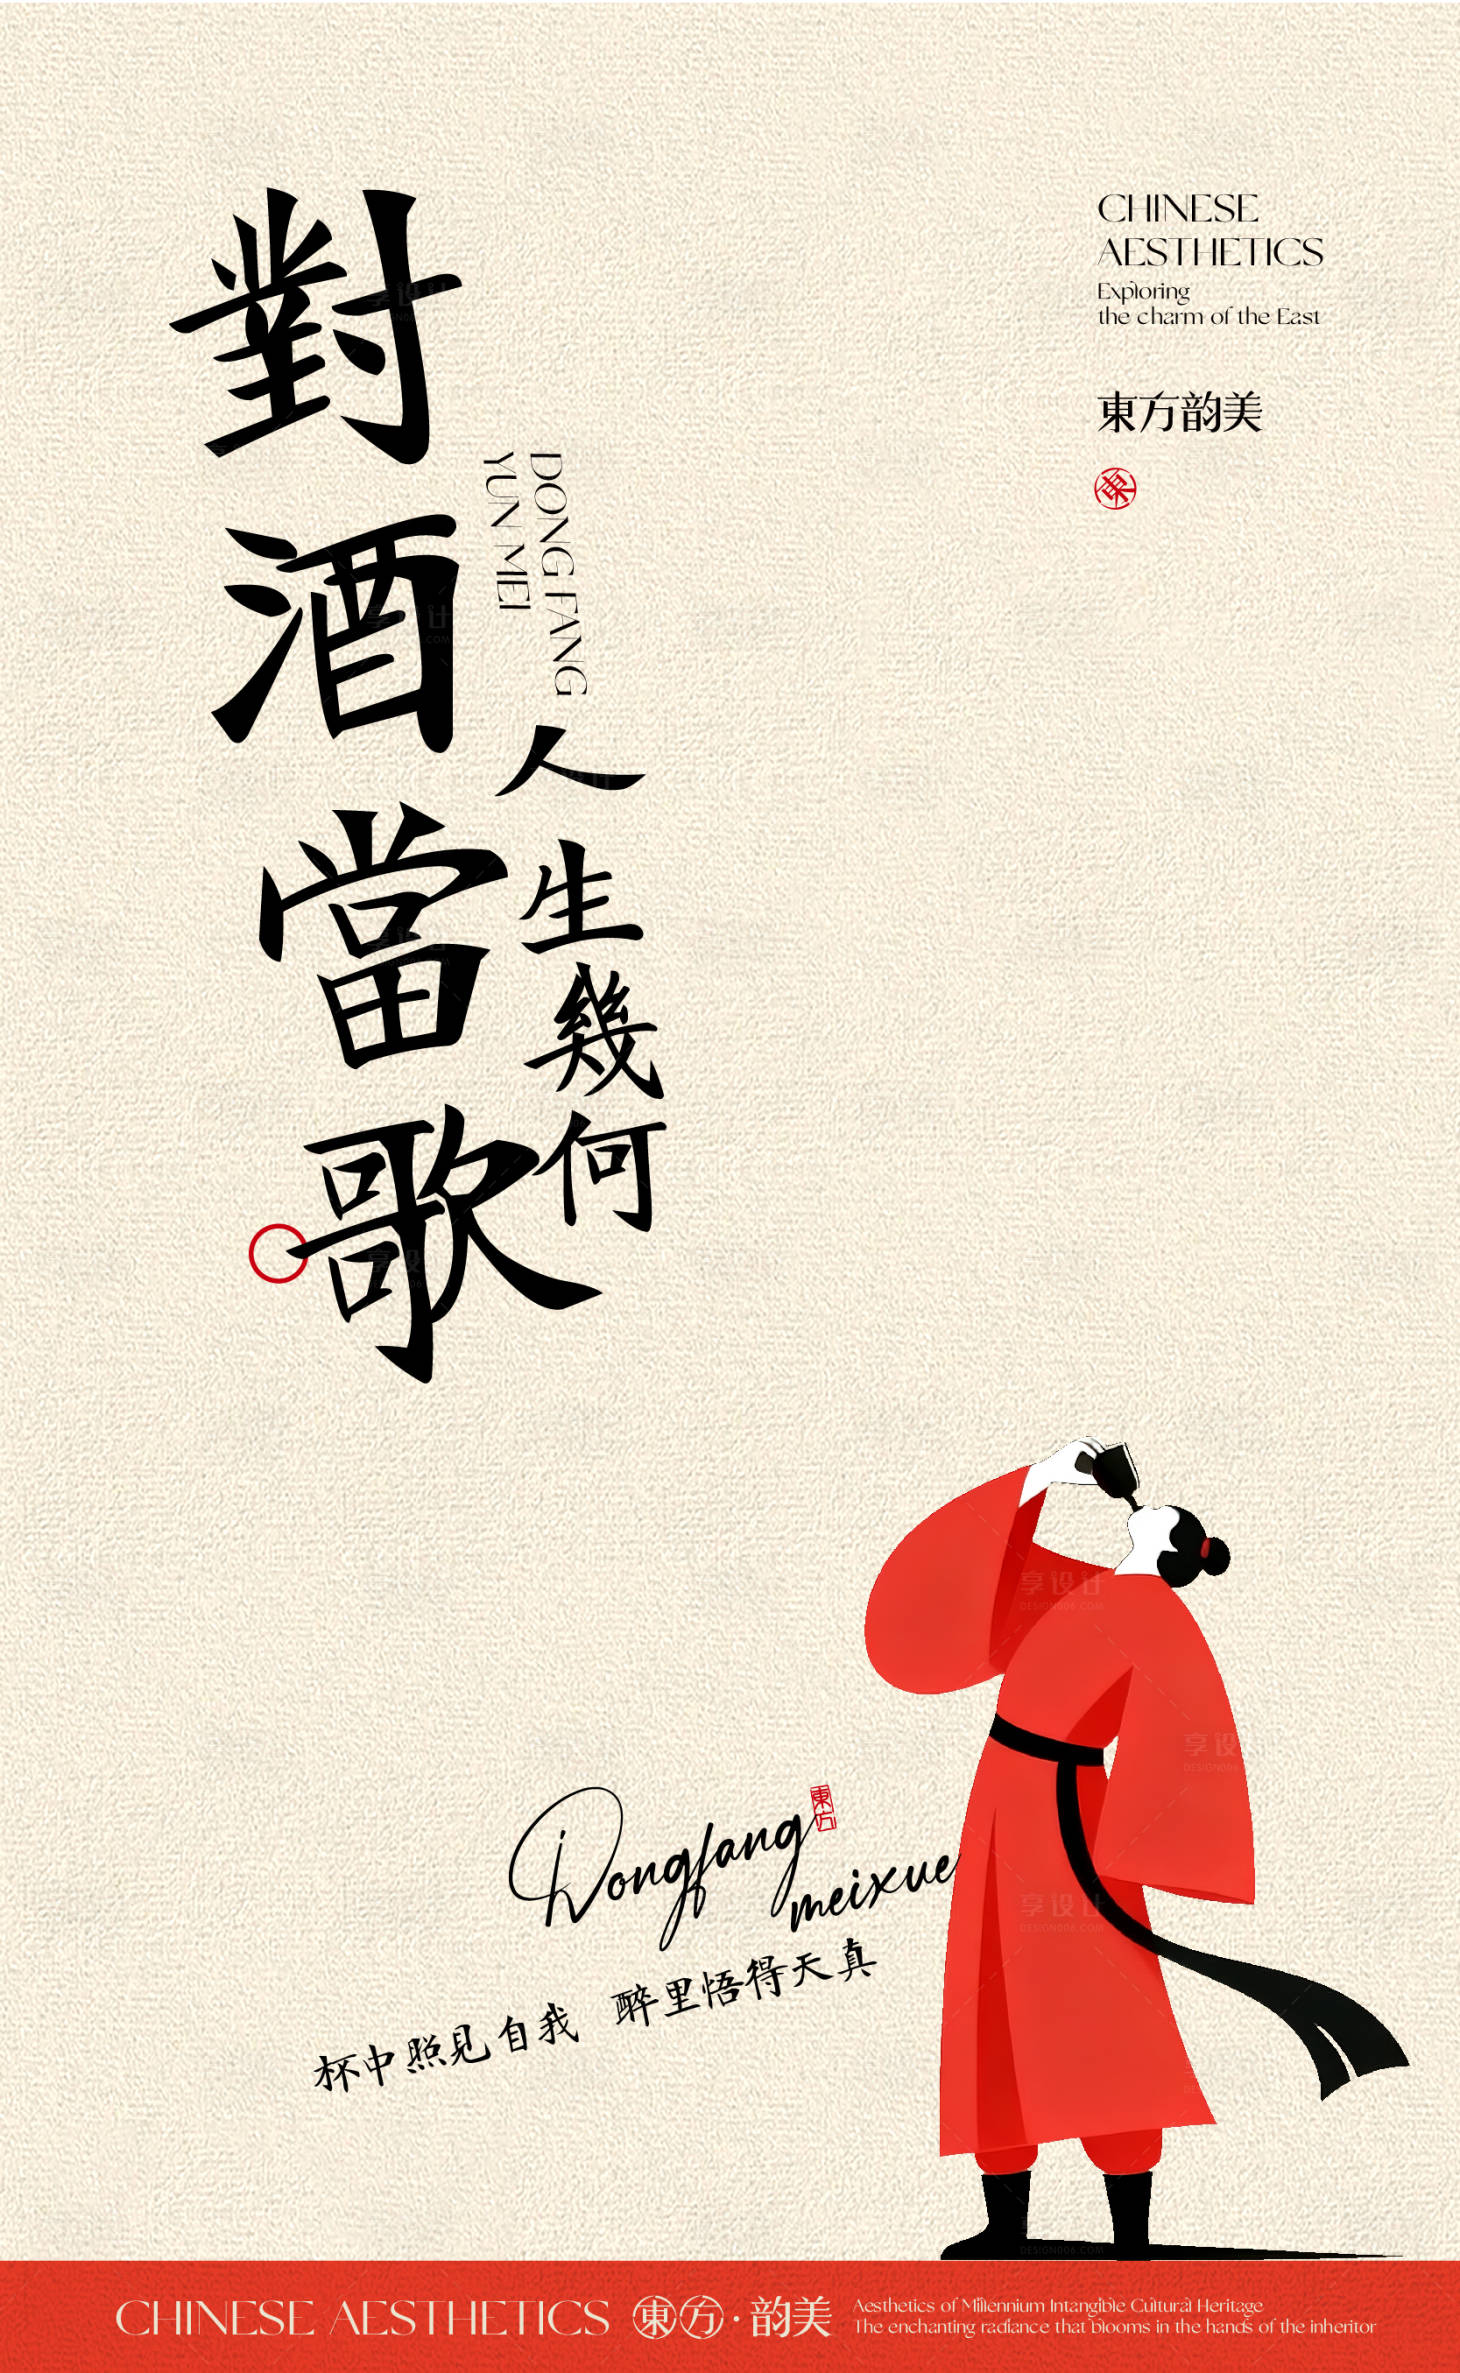 對酒當歌
人生幾何
DONG FANG
YUN MEI
CHINESE
AESTHETICS
Exploring
the charm of the East
東方韵美
東
Dongfang
東方
meixue
杯中照見自我 醉里悟得天真
CHINESE AESTHETICS 東方·韵美
Aesthetics of Millennium Intangible Cultural Heritage
The enchanting radiance that blooms in the hands of the inheritor
享设计
DESIGN006.COM